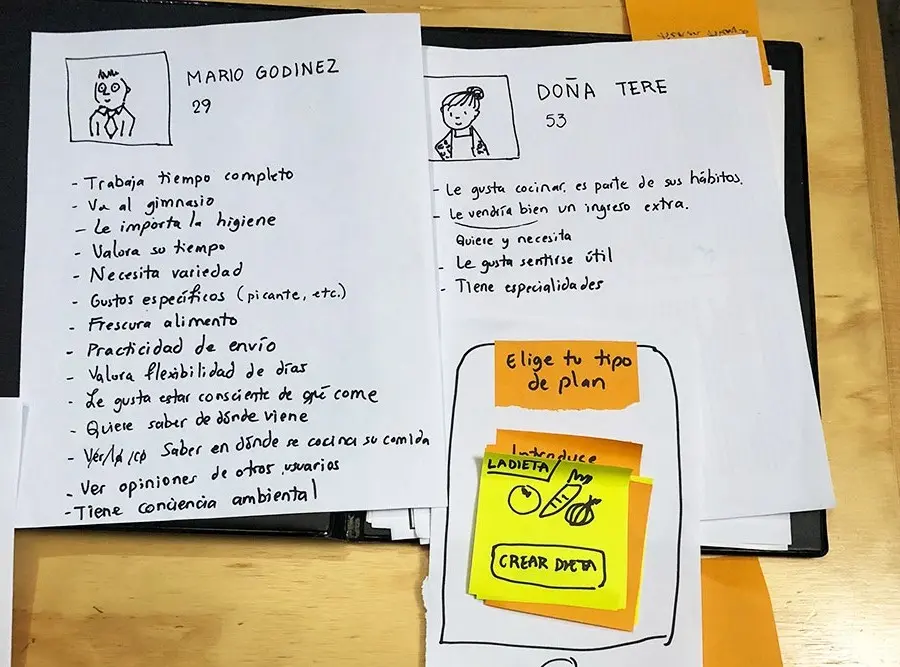 MARIO GODINEZ
29
- Trabaja tiempo completo
- Va al gimnasio
- Le importa la higiene
- Valora su tiempo
- Necesita variedad
- Gustos específicos (picante, etc.)
- Frescura alimento
- Practicidad de envío
- Valora flexibilidad de días
- Le gusta estar consciente de qué come
- Quiere saber de dónde viene
- Saber en dónde se cocina su comida
- Ver opiniones de otros usuarios
- Tiene conciencia ambiental
DOÑA TERE
53
- Le gusta cocinar, es parte de sus hábitos.
- Le vendría bien un ingreso extra.
Quiere y necesita
- Le gusta sentirse útil
- Tiene especialidades
Elige tu tipo
de plan
Introduce
LA DIETA
CREAR DIETA